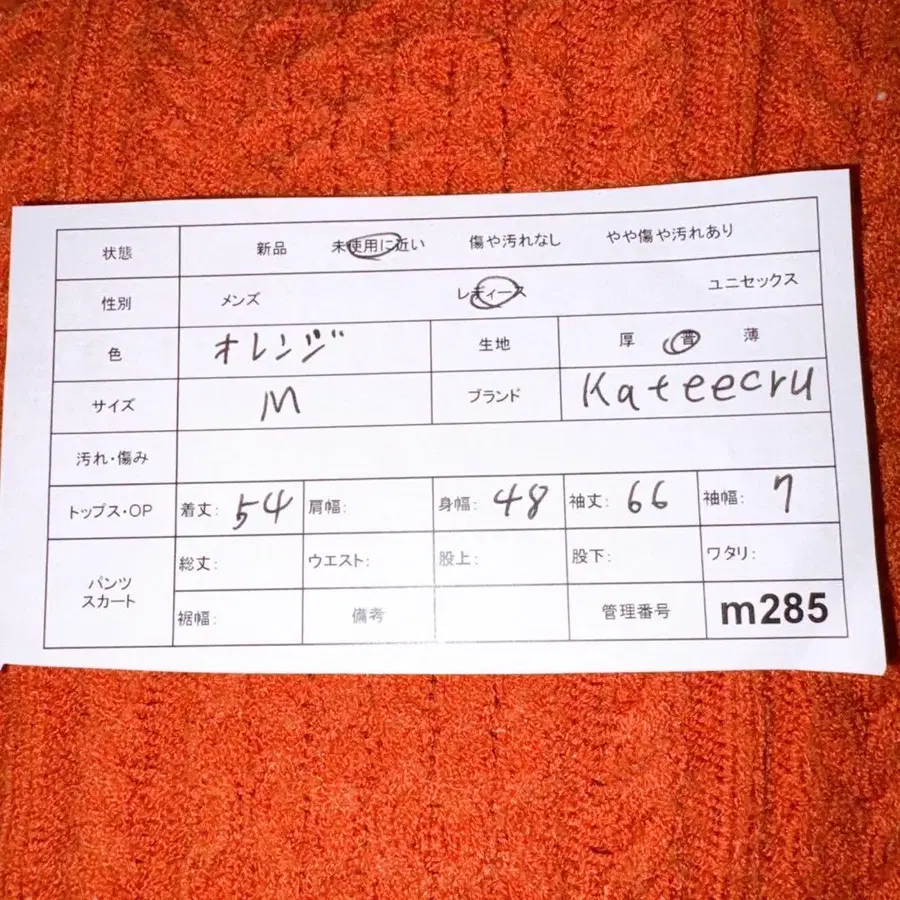 状態 新品 未使用に近い 傷や汚れなし やや傷や汚れあり
性別 メンズ レディース ユニセックス
色 オレンジ 生地 厚 普 薄
サイズ M ブランド Kateecru
汚れ・傷み
トップス・OP 着丈: 54 肩幅: 身幅: 48 袖丈: 66 袖幅: 7
パンツ スカート 総丈: ウエスト: 股上: 股下: ワタリ:
裾幅: 備考 管理番号 m285